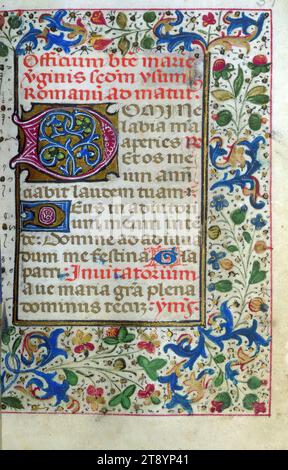 Officium bte marie
v̄ginis scdm vsum
Romanū ad matut
DOMINE
labia mea
aperies Et os me
um ann
ciabit laudem tuam
Deus in adiutori
um meum inten
de: Domine ad ad
dum me festina Gla
patri Inuitatorium
aue maria grā plena
dominus tecū: ymꝰ
alamy
2T8YP41